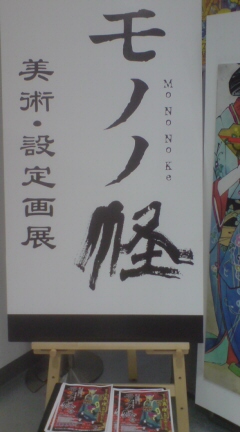 モノノ怪
MoNoNoKe
美術・設定画展